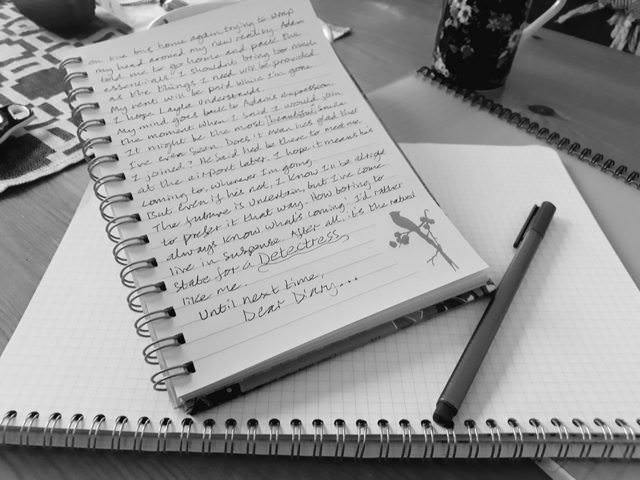 on the bus home again trying to wrap
my head around my new reality. Adam
told me to go home and pack the
essentials. I shouldn't bring too much
as the things I need will be provided.
My rent will be paid while I'm gone.
I hope Layla understands.
My mind goes back to Adam's expression
the moment when I said I would join.
It might be the most beautiful smile
I've ever seen. Does it mean he's glad that
I joined? He said he'd be there to meet me
at the airport later. I hope it means he's
coming to, wherever I'm going.
But even if he's not, I know I'll be alright
The future is uncertain, but I've come
to prefer it that way. How boring to
always know what's coming. I'd rather
live in suspense. After all, it's the natural
state for a Detectress,
like me.
Until next time,
Dear Diary...